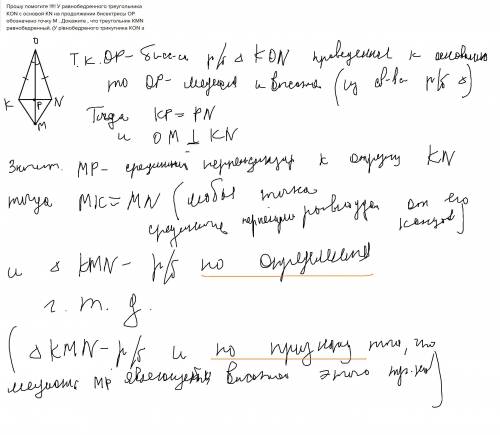 Прошу помогите !!!!! У равнобедренного треугольника
KON с основой KN на продолжении бисектрисы OP
обозначено точку M . Докажите , что треугольник KMN
равнобедренный. (У рівнобедреного трикутника KON з
O
K P N
M
Т.к. OP - бис-са р/б △ KON проведенная к основанию
то OP - медиана и высота (из св-ва р/б △)
Тогда KP = PN
и OM ⊥ KN
Значит. MP - срединный перпендикуляр к отрезку KN
тогда MK = MN (любая точка
срединного равноудал от его
концов)
и △ KMN - р/б по определению
ч. т. д.
(△ KMN - р/б и по признаку того, что
медиана MP высотой этого тр-ка)